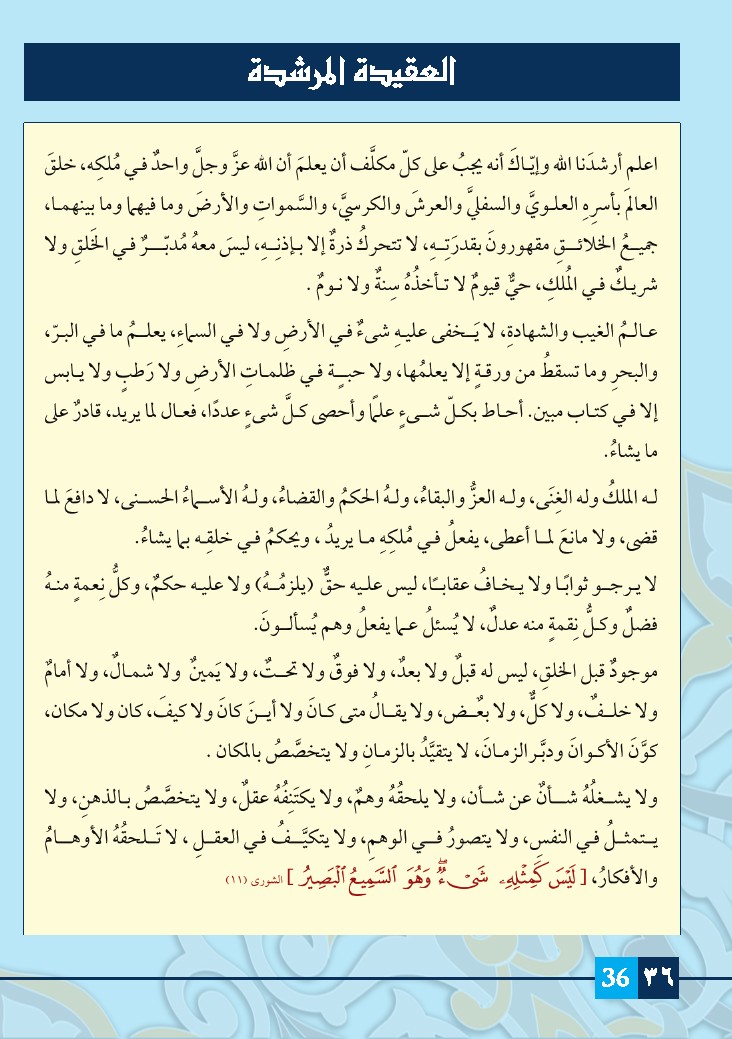 العقيدة المرشدة
اعلم أرشدَنا الله وإيّاكَ أنه يجبُ على كلّ مكلَّف أن يعلمَ أن الله عزَّ وجلَّ واحدٌ في مُلكِه، خلقَ
العالمَ بأسرِهِ العلويَّ والسفليَّ والعرشَ والكرسيَّ، والسَّمواتِ والأرضَ وما فيهما وما بينهما،
جميعُ الخلائقِ مقهورونَ بقدرَتِهِ، لا تتحركُ ذرةٌ إلا بإذنِهِ، ليسَ معهُ مُدبّرٌ في الخَلقِ ولا
شريكٌ في المُلكِ، حيٌّ قيومٌ لا تأخذُهُ سِنةٌ ولا نومٌ .
عالمُ الغيب والشهادةِ، لا يَخفى عليهِ شىءٌ في الأرضِ ولا في السماءِ، يعلمُ ما في البرّ،
والبحرِ وما تسقطُ من ورقةٍ إلا يعلمُها، ولا حبةٍ في ظلماتِ الأرضِ ولا رَطبٍ ولا يابس
إلا في كتاب مبين. أحاط بكلّ شىءٍ علمًا وأحصى كلَّ شىءٍ عددًا، فعال لما يريد، قادرٌ على
ما يشاءُ.
له الملكُ وله الغِنَى، وله العزُّ والبقاءُ، ولهُ الحكمُ والقضاءُ، ولهُ الأسماءُ الحسنى، لا دافعَ لما
قضى، ولا مانعَ لما أعطى، يفعلُ في مُلكِهِ ما يريدُ ، ويحكمُ في خلقِه بما يشاءُ.
لا يرجو ثوابًا ولا يخافُ عقابًا، ليس عليه حقٌّ (يلزمُهُ) ولا عليه حكمٌ، وكلُّ نِعمةٍ منهُ
فضلٌ وكلُّ نِقمةٍ منه عدلٌ، لا يُسئلُ عما يفعلُ وهم يُسألونَ.
موجودٌ قبل الخلقِ، ليس له قبلٌ ولا بعدٌ، ولا فوقٌ ولا تحتٌ، ولا يَمينٌ ولا شمالٌ، ولا أمامٌ
ولا خلفٌ، ولا كلٌّ، ولا بعٌض، ولا يقالُ متى كانَ ولا أينَ كانَ ولا كيفَ، كان ولا مكان،
كوَّنَ الأكوانَ ودبَّر الزمانَ، لا يتقيَّدُ بالزمانِ ولا يتخصَّصُ بالمكان .
ولا يشغلُهُ شأنٌ عن شأن، ولا يلحقُهُ وهمٌ، ولا يكتَنِفُهُ عقلٌ، ولا يتخصَّصُ بالذهنِ، ولا
يتمثلُ في النفسِ، ولا يتصورُ في الوهمِ، ولا يتكيَّفُ في العقلِ ، لا تَلحقُهُ الأوهامُ
والأفكارُ، [ لَيْسَ كَمِثْلِهِۦ شَىْءٌۖ وَهُوَ ٱلسَّمِيعُ ٱلْبَصِيرُ ] الشورى (١١)
36 ٣٦